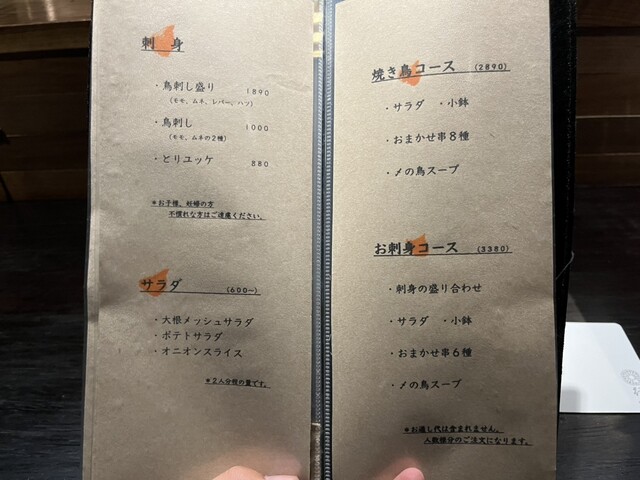 刺 身
・鳥刺し盛り 1890
(モモ、ムネ、レバー、ハツ)
・鳥刺し 1000
(モモ、ムネの2種)
・とりユッケ 880
＊お子様、妊婦の方
不慣れな方はご遠慮ください。
サラダ (600～)
・大根メッシュサラダ
・ポテトサラダ
・オニオンスライス
＊2人分程の量です。
焼き鳥コース (2890)
・サラダ ・小鉢
・おまかせ串8種
・〆の鳥スープ
お刺身コース (3380)
・刺身の盛り合わせ
・サラダ ・小鉢
・おまかせ串6種
・〆の鳥スープ
＊お通し代は含まれません。
人数様分のご注文になります。